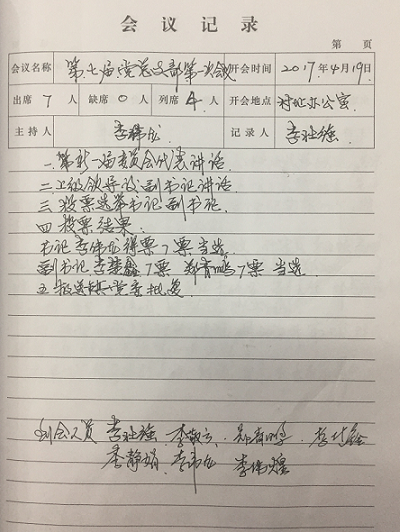 会议记录
第 页
会议名称 第七届党总支部第一次会 开会时间 2017年4月19日
出席 7 人 缺席 0 人 列席 4 人 开会地点 村址办公室
主持人 李伟 记录人 李壮强
一.第新一届委员会代表讲话
二.上级领导致副书记讲话.
三.投票选举书记 副书记.
四.投票结果.
书记 李伟 得票7票 当选
副书记 李 7票 郑育鹏7票 当选
五.报送镇党委批复
到会人员 李壮强 李 郑育鹏. 李
李静娟 李伟 李伟煌